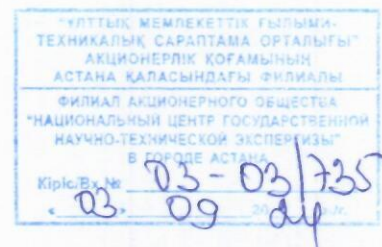 "ҰЛТТЫҚ МЕМЛЕКЕТТІК ҒЫЛЫМИ-
ТЕХНИКАЛЫҚ САРАПТАМА ОРТАЛЫҒЫ"
АКЦИОНЕРЛІК ҚОҒАМЫНЫҢ
АСТАНА ҚАЛАСЫНДАҒЫ ФИЛИАЛЫ
ФИЛИАЛ АКЦИОНЕРНОГО ОБЩЕСТВА
"НАЦИОНАЛЬНЫЙ ЦЕНТР ГОСУДАРСТВЕННОЙ
НАУЧНО-ТЕХНИЧЕСКОЙ ЭКСПЕРТИЗЫ"
В ГОРОДЕ АСТАНА
Кіріс/Вх.№ 03-03/735
«03» 09